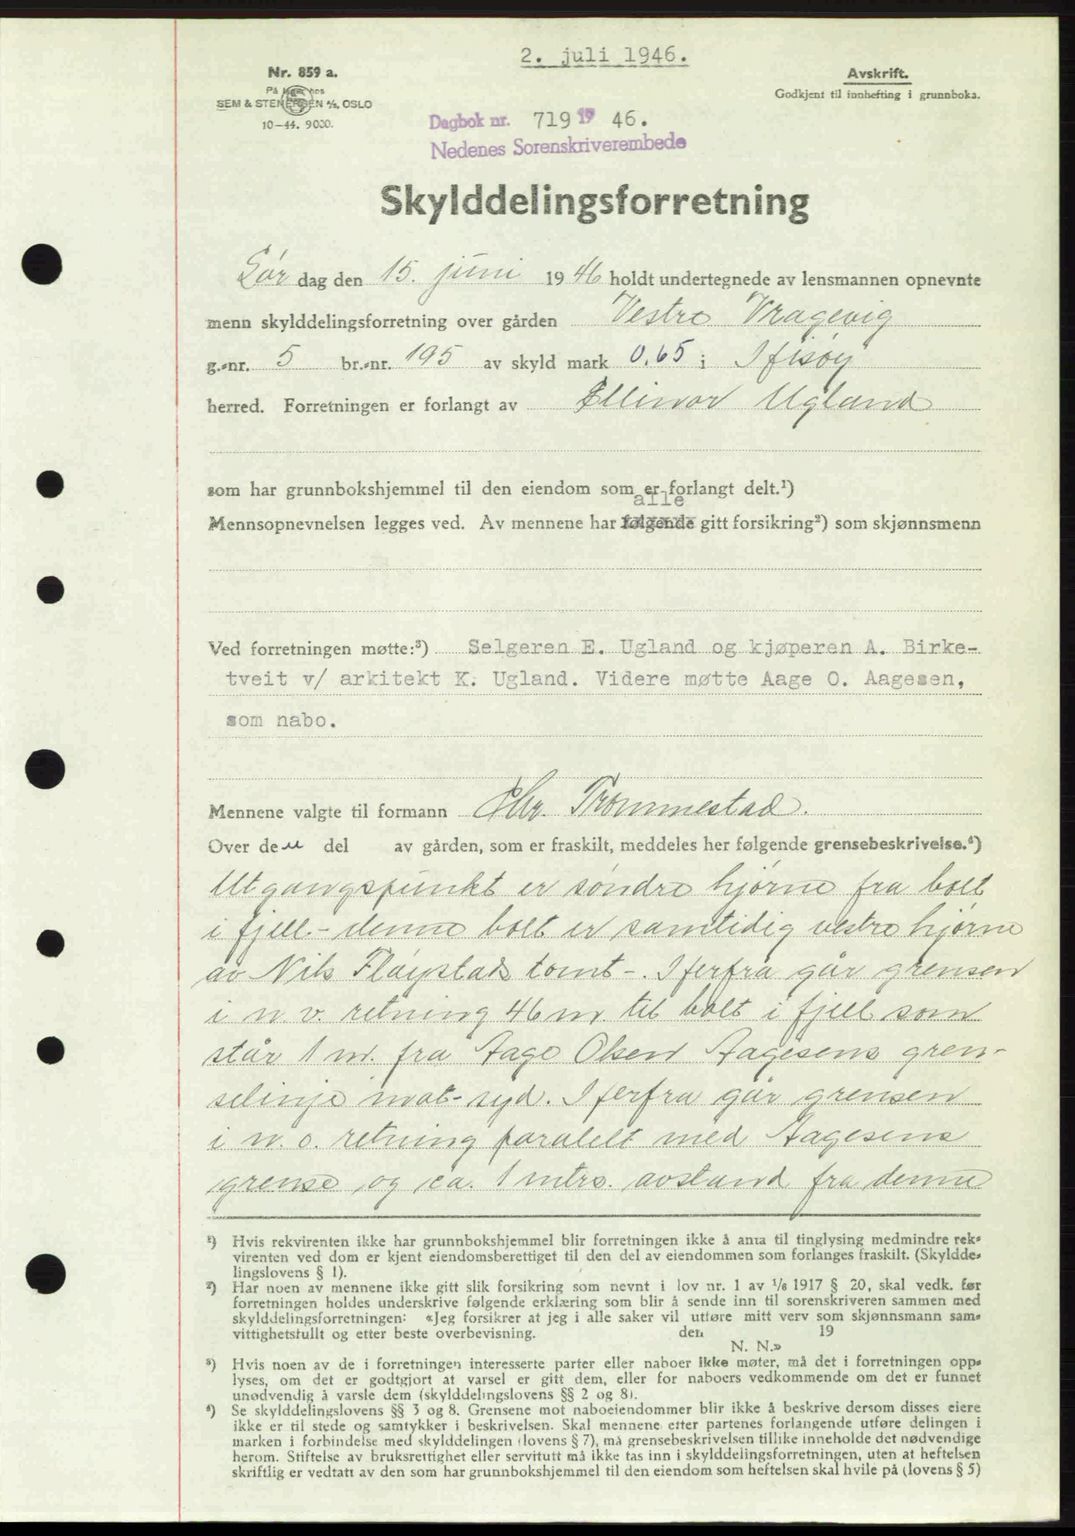 2. juli 1946.
Nr. 859 a.
På lager hos
SEM & STENERSEN A/S, OSLO
10-44. 9000.
Avskrift.
Godkjent til innhefting i grunnboka.
Dagbok nr. 719 19 46.
Nedenes Sorenskriverembede
Skylddelingsforretning
Lør dag den 15. juni 1946 holdt undertegnede av lensmannen opnevnte
menn skylddelingsforretning over gården Vestre Vragevig
g.-nr. 5 br.-nr. 195 av skyld mark 0.65 i
herred. Forretningen er forlangt av Ellinor Ugland
som har grunnbokshjemmel til den eiendom som er forlangt delt.¹)
alle
Mennsopnevnelsen legges ved. Av mennene har følgende gitt forsikring²) som skjønnsmenn
Ved forretningen møtte:³) Selgeren E. Ugland og kjøperen A. Birke-
tveit v/ arkitekt K. Ugland. Videre møtte Aage O. Aagesen,
som nabo.
Mennene valgte til formann Chr. Trommestad.
Over den del av gården, som er fraskilt, meddeles her følgende grensebeskrivelse.⁴)
Utgangspunkt er søndre hjørne fra bolt
i fjell.- denne bolt er samtidig vestre hjørne
av Nils Fløystads tomt-. Iferfra går grensen
i n. v. retning 46 m. til bolt i fjell som
står 1 m. fra Aage Olsen Aagesens gren-
selinje mot syd. Iferfra går grensen
i n. o. retning paralelt med Aagesens
grense og ca. 1 mtrs. avstand fra denne
¹) Hvis rekvirenten ikke har grunnbokshjemmel blir forretningen ikke å anta til tinglysing medmindre rek-
virenten ved dom er kjent eiendomsberettiget til den del av eiendommen som forlanges fraskilt. (Skyldde-
lingslovens § 1).
²) Har noen av mennene ikke gitt slik forsikring som nevnt i lov nr. 1 av 1/6 1917 § 20, skal vedk. før
forretningen holdes underskrive følgende erklæring som blir å sende inn til sorenskriveren sammen med
skylddelingsforretningen: «Jeg forsikrer at jeg i alle saker vil utføre mitt verv som skjønnsmann sam-
vittighetsfullt og etter beste overbevisning. den 19
N. N.»
³) Hvis noen av de i forretningen interesserte parter eller naboer ikke møter, må det i forretningen opp-
lyses, om det er godtgjort at varsel er gitt dem, eller for naboers vedkommende om det er funnet
unødvendig å varsle dem (skylddelingslovens §§ 2 og 8).
⁴) Se skylddelingslovens §§ 3 og 8. Grensene mot naboeiendommer blir ikke å beskrive dersom disses eiere
ikke er til stede og samtykker i beskrivelsen. Skal mennene etter partenes forlangende utføre delingen i
marken i forbindelse med skylddelingen (lovens § 7), må grensebeskrivelsen tillike inneholde det nødvendige
herom. Stiftelse av bruksrettighet eller servitutt må ikke tas inn i skylddelingsforretningen, uten at heftelsen
skriftlig er vedtatt av den som har grunnbokshjemmel til den eiendom som heftelsen skal hvile på (lovens § 5)